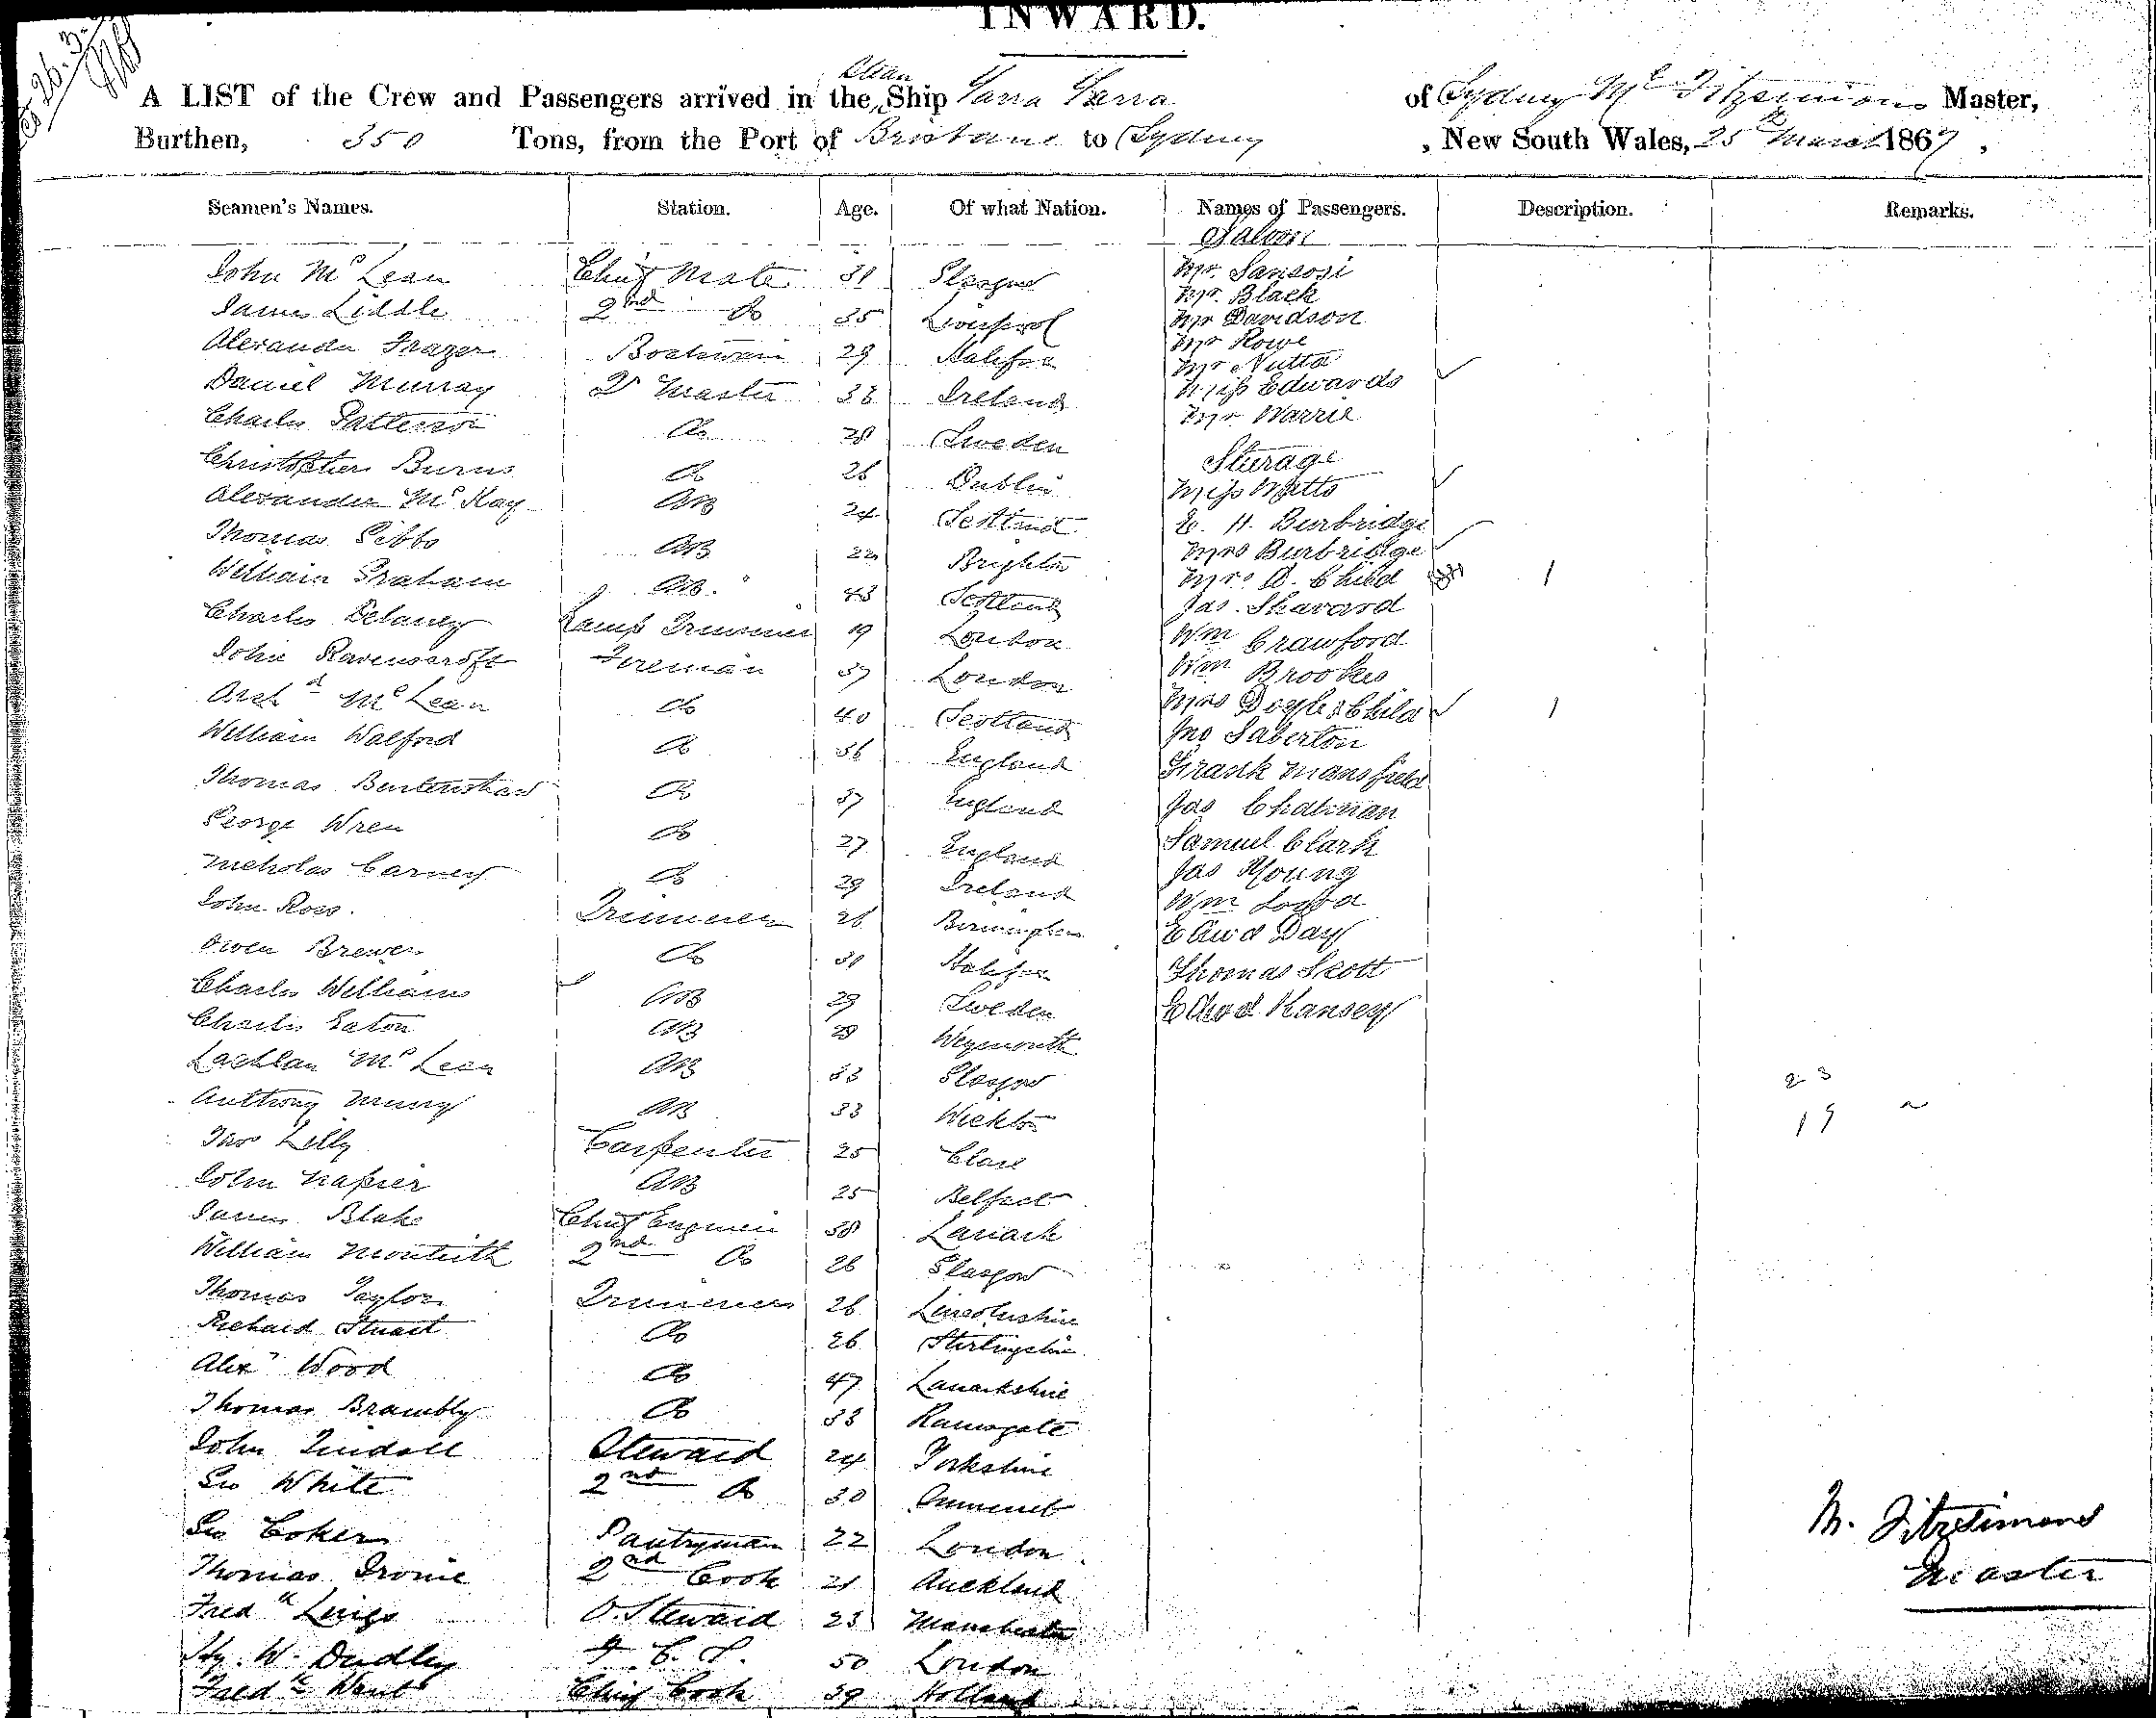 INWARD.
A LIST of the Crew and Passengers arrived in the Steam Ship Yarra Yarra of Sydney Mc Fitzsimons Master,
Burthen, 350 Tons, from the Port of Brisbane to Sydney , New South Wales, 25th March 1867 ,
Seamen's Names. Station. Age. Of what Nation. Names of Passengers. Description. Remarks.
Saloon
John Mc Lean Chief Mate 31 Glasgow Mr. Sansosi
Mr. Black
James Liddle 2nd Do 35 Liverpool Mr Davidson
Mr Rowe
Alexander Frazer Boatswain 29 Halifax Mr Nutta
Daniel Murray Qr Master 38 Ireland Miss Edwards
Charles Patterson Do 28 Sweden Mr Warrie
Christopher Burns Do 26 Dublin Steerage
Alexander Mc Kay AB 24 Scotland Miss Watts
Thomas Gibbs AB 22 Brighton E. H. Burbridge
Mrs Burbridge
William Graham AB. 43 Scotland Mrs D. Child 1
Jas. Shavard
Charles Delaney Lamp Trimmer 19 London Wm Crawford
John Ravenscroft Fireman 37 London Wm Brookes
Archd Mc Lean Do 40 Scotland Mrs Doyle & Child 1
William Walford Do 36 England Jno Saberton
Thomas Burtenshaw Do 37 England Frank Mansfield
Jas Chatman
George Wren Do 27 England Samuel Clark
Nicholas Carney Do 29 Ireland Jas Young
John Ross. Trimmer 26 Birmingham Wm
Edwd Day
Owen Brewer Do 31 Halifax Thomas Scott
Charles Williams AB 29 Sweden Edwd. Kansey
Charles Eaton AB 28 Weymouth
Lachlan Mc Lean AB 33 Glasgow 23
Anthony Murray AB 33 19
Thos Lilly Carpenter 25 Clare
John Napier AB 25 Belfast
James Blake Chief Engineer 38 Lanark
William Monteith 2nd Do 26 Glasgow
Thomas Taylor Trimmer 26 Lincolnshire
Richard Stuart Do 26 Stirlingshire
Alexr Wood Do 47 Lanarkshire
Thomas Brambly Do 33 Ramsgate
John Tindall Steward 24 Yorkshire
Geo White 2nd Do 30
Geo Coker Pantryman 22 London M. Fitzsimons
Thomas Ironie 2nd Cook 21 Auckland Master
Fredk Lings O. Steward 23 Manchester
Hy. W. Dudley F. C. S. 50 London
Fredk Went Chief Cook 39 Holland